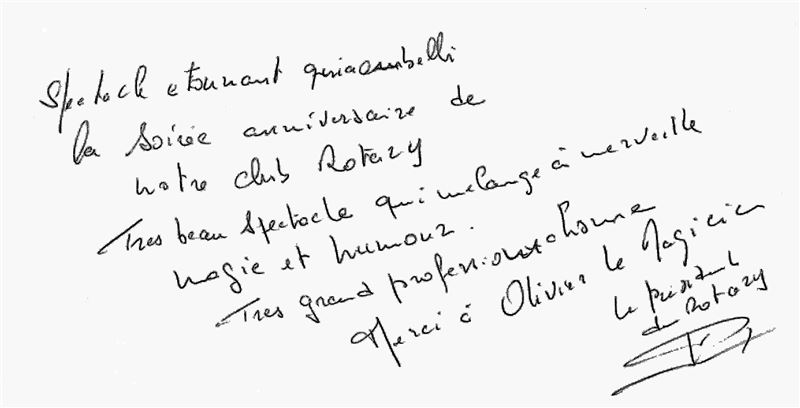 Spectacle etonnant qui a embelli
la soirée anniversaire de
notre club Rotary
Tres beau spectacle qui melange à merveille
magie et humour.
Tres grand professionnalisme
Merci à Olivier le Magicien
le président
du Rotary